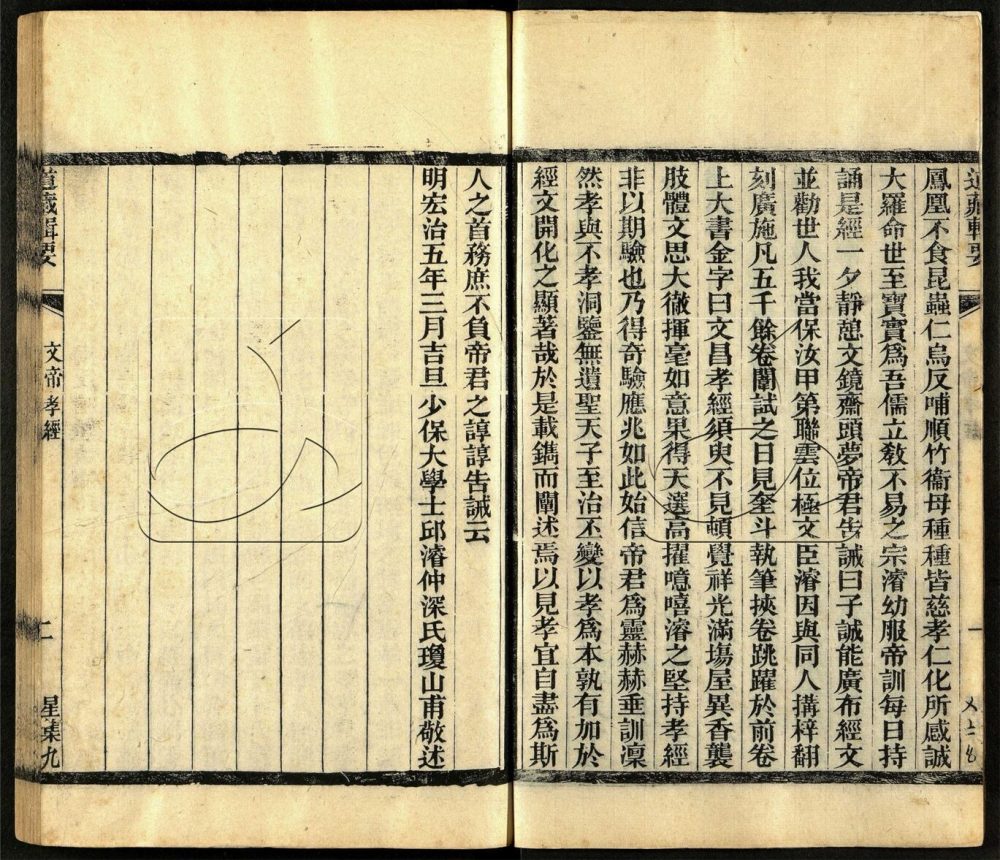 道藏輯要
一
鳳凰不食昆蟲仁烏反哺順竹衞母種種皆慈孝仁化所感誠
大羅命世至寶實爲吾儒立敎不易之宗濬幼服帝訓每日持
誦是經一夕靜憩文鏡齋頭夢帝君告誡曰子誠能廣布經文
並勸世人我當保汝甲第聯雲位極文臣濬因與同人搆梓翻
刻廣施凡五千餘卷闈試之日見奎斗執筆挾卷跳躍於前卷
上大書金字曰文昌孝經須臾不見頓覺祥光滿塲屋異香襲
肢體文思大徹揮毫如意果得大選高擢噫嘻濬之堅持孝經
非以期驗也乃得奇驗應兆如此始信帝君爲靈赫赫垂訓凜
然孝與不孝洞鑒無遺聖天子至治丕變以孝爲本孰有加於
經文開化之顯著哉於是載鐫而闡述焉以見孝宜自盡爲斯
人之首務庶不負帝君之諄諄告誡云
明宏治五年三月吉旦少保大學士邱濬仲深氏瓊山甫敬述
道藏輯要
文帝孝經
二
星集九